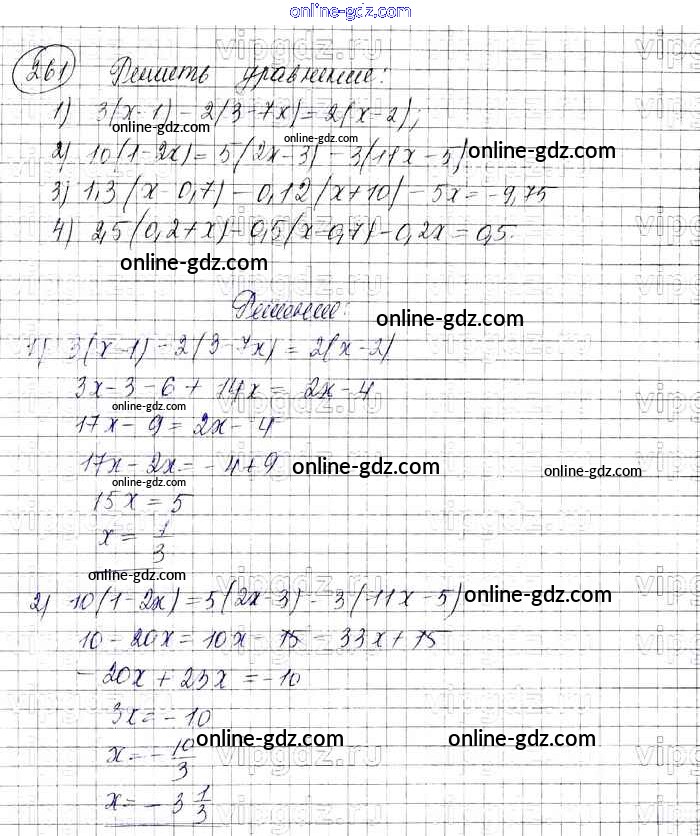 online-gdz.com
261 Решить уравнение:
1) 3(x-1) - 2(3-7x) = 2(x-2);
online-gdz.com online-gdz.com
2) 10(1-2x) = 5(2x-3) - 3(11x-5) online-gdz.com
3) 1,3(x-0,7) - 0,12(x+10) - 5x = -9,75
4) 2,5(0,2+x) - 0,5(x-0,7) - 0,2x = 0,5.
online-gdz.com
Решение:
online-gdz.com
1) 3(x-1) - 2(3-7x) = 2(x-2)
3x - 3 - 6 + 14x = 2x - 4
online-gdz.com
17x - 9 = 2x - 4
17x - 2x = -4 + 9 online-gdz.com online-gdz.com
online-gdz.com
15x = 5
x = 1/3
online-gdz.com
2) 10(1-2x) = 5(2x-3) - 3(11x-5) online-gdz.com
10 - 20x = 10x - 15 - 33x + 15
-20x + 23x = -10
3x = -10
online-gdz.com online-gdz.com
x = -10/3
x = -3 1/3